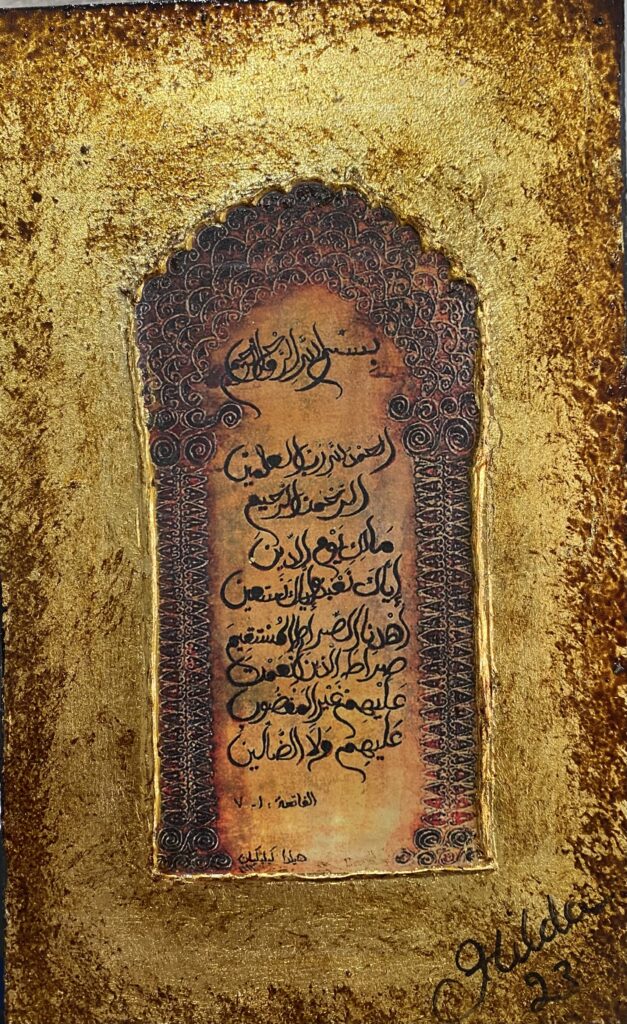 بسم الله الرحمن الرحيم
الحمد لله رب العلمين
الرَّحْمن الرَّحيم
مَالك يَوْم الدِّين
إيَّاك نَعْبد وإيَّاك نَسْتعين
اهْدنا الصِّراط المُسْتقيمَ
صراط الَّذين أنعمت
عليْهم غَيْر المغضوب
عَليْهم وَلا الضَّالِّينَ
الفاتحة ١ - ٧
هيلدا كيليكيان
Hilda
23